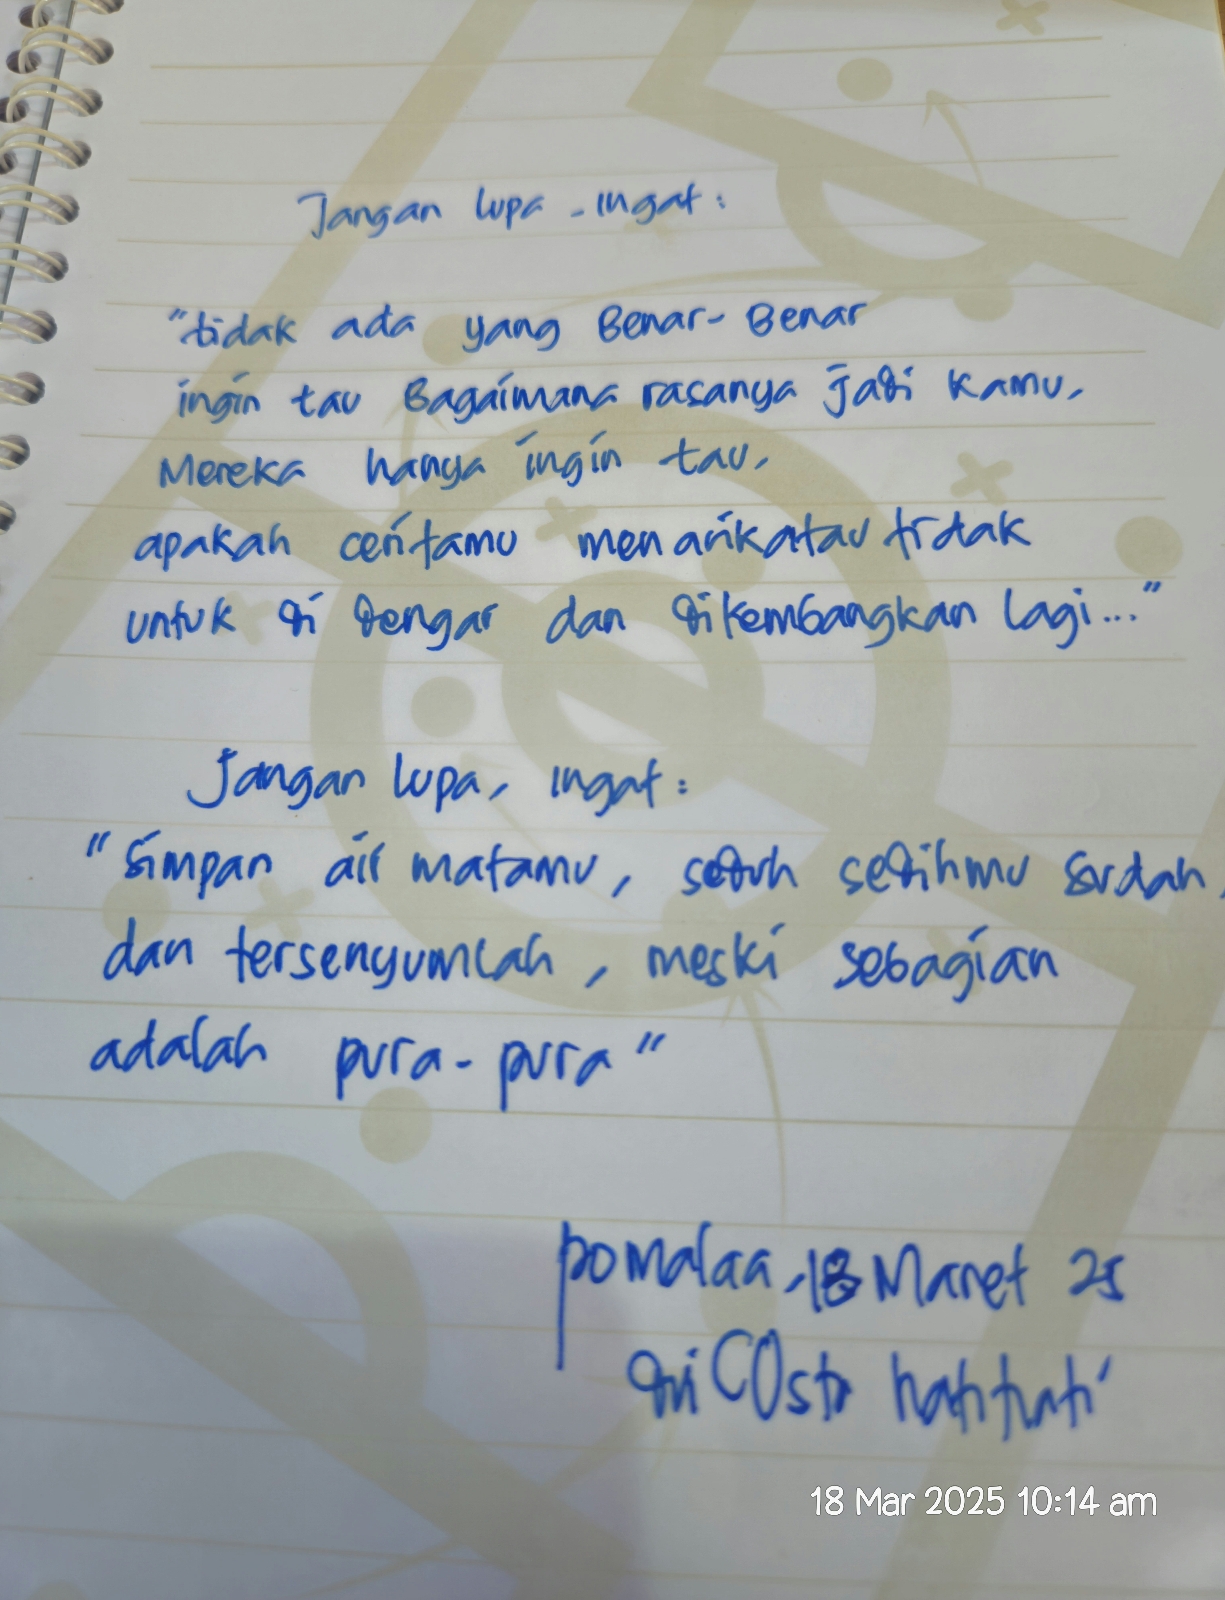 Jangan lupa - Ingat :
"tidak ada yang Benar-Benar
ingin tau Bagaimana rasanya jadi kamu,
Mereka hanya ingin tau,
apakah ceritamu menarik atau tidak
untuk di dengar dan dikembangkan lagi..."
Jangan lupa, Ingat :
"Simpan air matamu, sedihmu sudah,
dan tersenyumlah, meski sebagian
adalah pura-pura"
Pomalaa, 18 Maret 25
18 Mar 2025 10:14 am